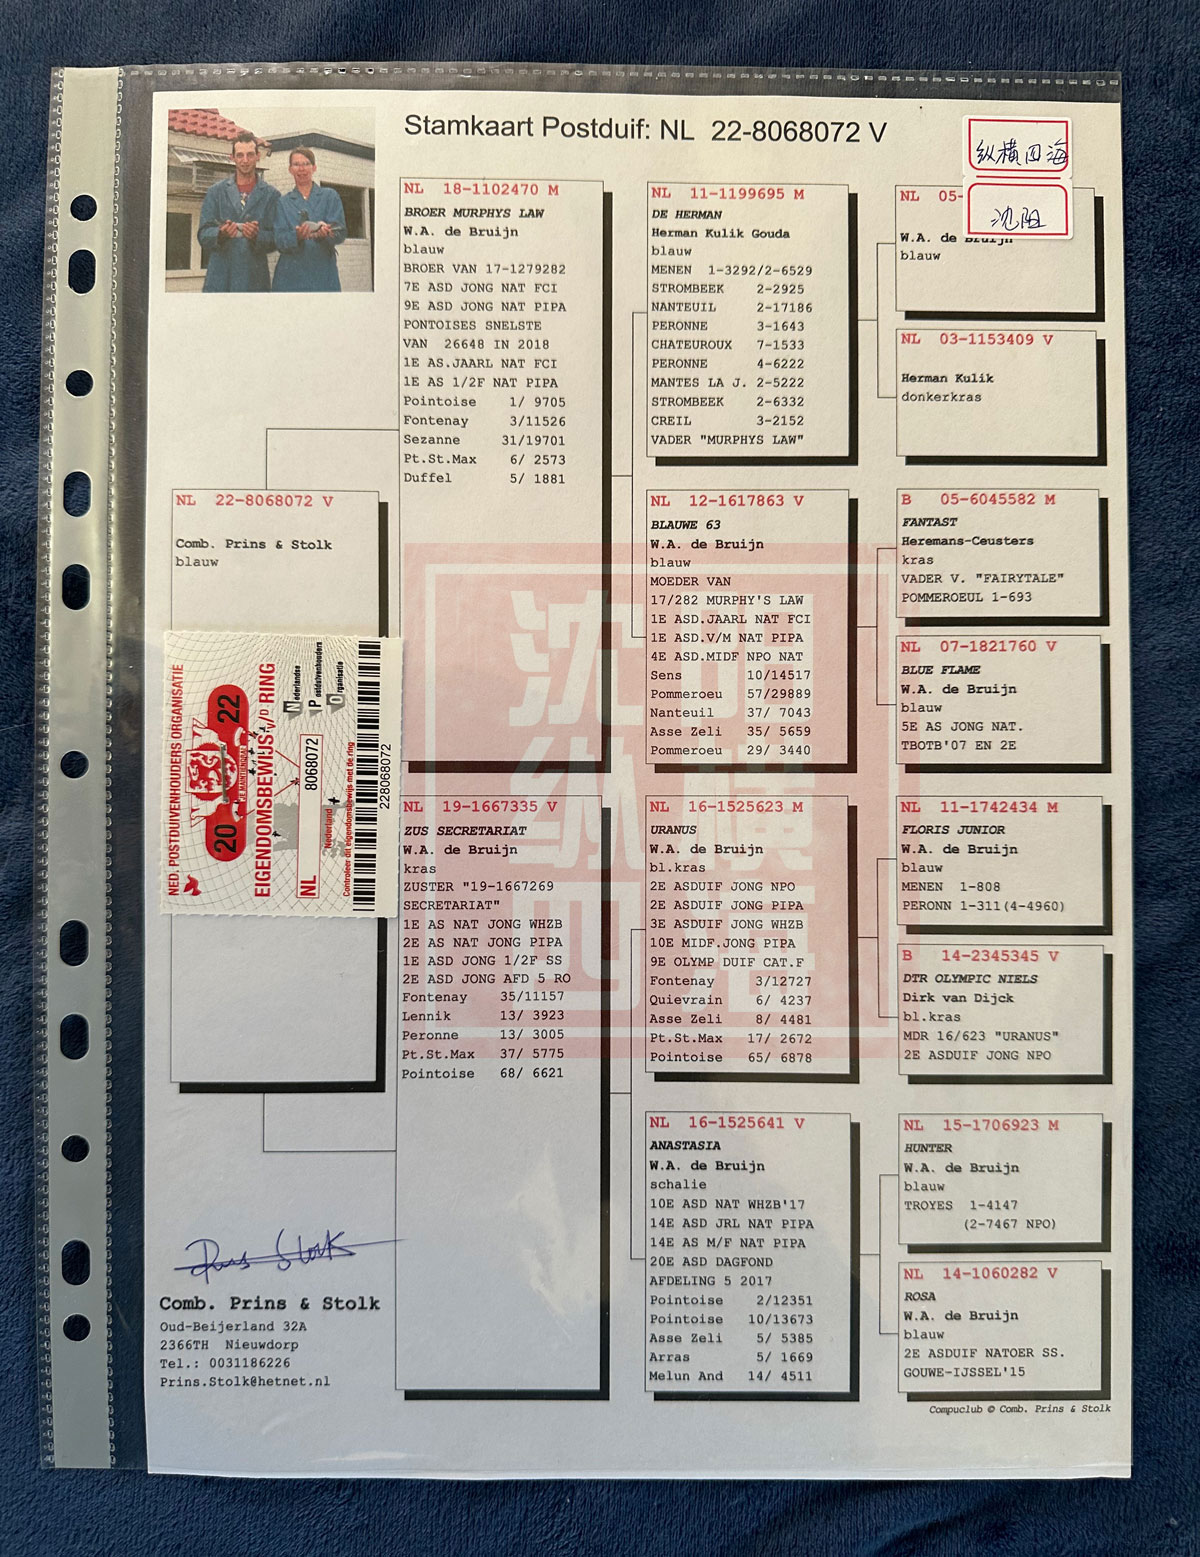 Stamkaart Postduif: NL 22-8068072 V
纵横四海
沈阳
NL 22-8068072 V
Comb. Prins & Stolk
blauw
NED. POSTDUIVENHOUDERS ORGANISATIE
20 22
DE MAINTIENDRAI
EIGENDOMSBEWIJS v/D RING
Nederlandse
Postduivenhouders
Organisatie
NL 8068072
Nederland
Controleer dit eigendomsbewijs met de ring
228068072
NL 18-1102470 M
BROER MURPHYS LAW
W.A. de Bruijn
blauw
BROER VAN 17-1279282
7E ASD JONG NAT FCI
9E ASD JONG NAT PIPA
PONTOISES SNELSTE
VAN 26648 IN 2018
1E AS.JAARL NAT FCI
1E AS 1/2F NAT PIPA
Pointoise 1/ 9705
Fontenay 3/11526
Sezanne 31/19701
Pt.St.Max 6/ 2573
Duffel 5/ 1881
NL 19-1667335 V
ZUS SECRETARIAT
W.A. de Bruijn
kras
ZUSTER "19-1667269
SECRETARIAT"
1E AS NAT JONG WHZB
2E AS NAT JONG PIPA
1E ASD JONG 1/2F SS
2E ASD JONG AFD 5 RO
Fontenay 35/11157
Lennik 13/ 3923
Peronne 13/ 3005
Pt.St.Max 37/ 5775
Pointoise 68/ 6621
NL 11-1199695 M
DE HERMAN
Herman Kulik Gouda
blauw
MENEN 1-3292/2-6529
STROMBEEK 2-2925
NANTEUIL 2-17186
PERONNE 3-1643
CHATEUROUX 7-1533
PERONNE 4-6222
MANTES LA J. 2-5222
STROMBEEK 2-6332
CREIL 3-2152
VADER "MURPHYS LAW"
NL 12-1617863 V
BLAUWE 63
W.A. de Bruijn
blauw
MOEDER VAN
17/282 MURPHY'S LAW
1E ASD.JAARL NAT FCI
1E ASD.V/M NAT PIPA
4E ASD.MIDF NPO NAT
Sens 10/14517
Pommeroeu 57/29889
Nanteuil 37/ 7043
Asse Zeli 35/ 5659
Pommeroeu 29/ 3440
NL 16-1525623 M
URANUS
W.A. de Bruijn
bl.kras
2E ASDUIF JONG NPO
2E ASDUIF JONG PIPA
3E ASDUIF JONG WHZB
10E MIDF.JONG PIPA
9E OLYMP DUIF CAT.F
Fontenay 3/12727
Quievrain 6/ 4237
Asse Zeli 8/ 4481
Pt.St.Max 17/ 2672
Pointoise 65/ 6878
NL 16-1525641 V
ANASTASIA
W.A. de Bruijn
schalie
10E ASD NAT WHZB'17
14E ASD JRL NAT PIPA
14E AS M/F NAT PIPA
20E ASD DAGFOND
AFDELING 5 2017
Pointoise 2/12351
Pointoise 10/13673
Asse Zeli 5/ 5385
Arras 5/ 1669
Melun And 14/ 4511
NL 05-
W.A. de Bruijn
blauw
NL 03-1153409 V
Herman Kulik
donkerkras
B 05-6045582 M
FANTAST
Heremans-Ceusters
kras
VADER V. "FAIRYTALE"
POMMEROEUL 1-693
NL 07-1821760 V
BLUE FLAME
W.A. de Bruijn
blauw
5E AS JONG NAT.
TBOTB'07 EN 2E
NL 11-1742434 M
FLORIS JUNIOR
W.A. de Bruijn
blauw
MENEN 1-808
PERONN 1-311(4-4960)
B 14-2345345 V
DTR OLYMPIC NIELS
Dirk van Dijck
bl.kras
MDR 16/623 "URANUS"
2E ASDUIF JONG NPO
NL 15-1706923 M
HUNTER
W.A. de Bruijn
blauw
TROYES 1-4147
(2-7467 NPO)
NL 14-1060282 V
ROSA
W.A. de Bruijn
blauw
2E ASDUIF NATOER SS.
GOUWE-IJSSEL'15
沈阳
纵横
四海
Prins Stolk
Comb. Prins & Stolk
Oud-Beijerland 32A
2366TH Nieuwdorp
Tel.: 0031186226
Prins.Stolk@hetnet.nl
Compuclub © Comb. Prins & Stolk